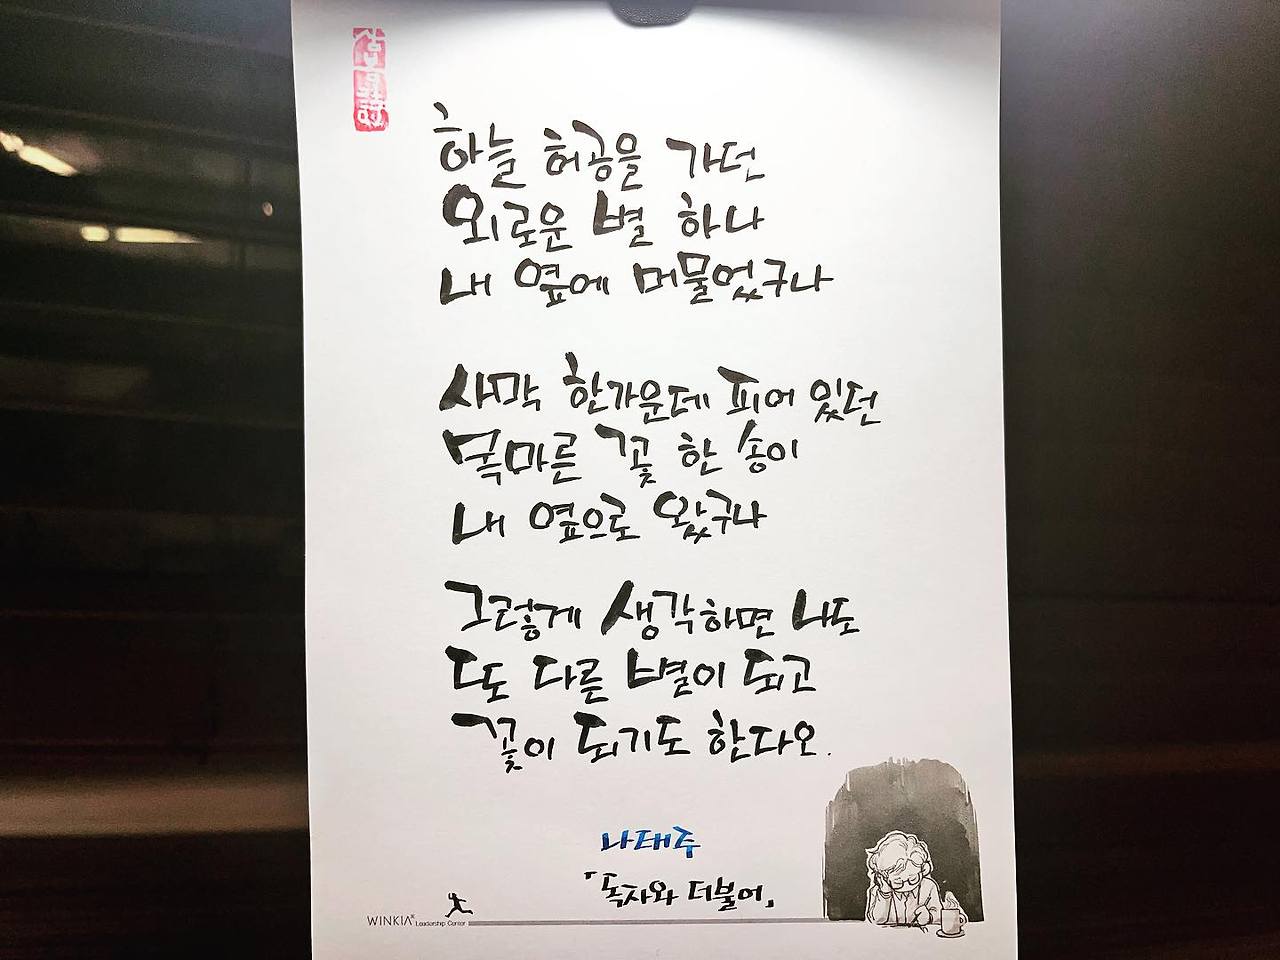 하늘 허공을 가던
외로운 별 하나
내 옆에 머물었구나
사막 한가운데 피어 있던
목마른 꽃 한 송이
내 옆으로 왔구나
그렇게 생각하면 나도
또 다른 별이 되고
꽃이 되기도 한다오.
나태주
「독자와 더불어」
WINKIA Leadership Center